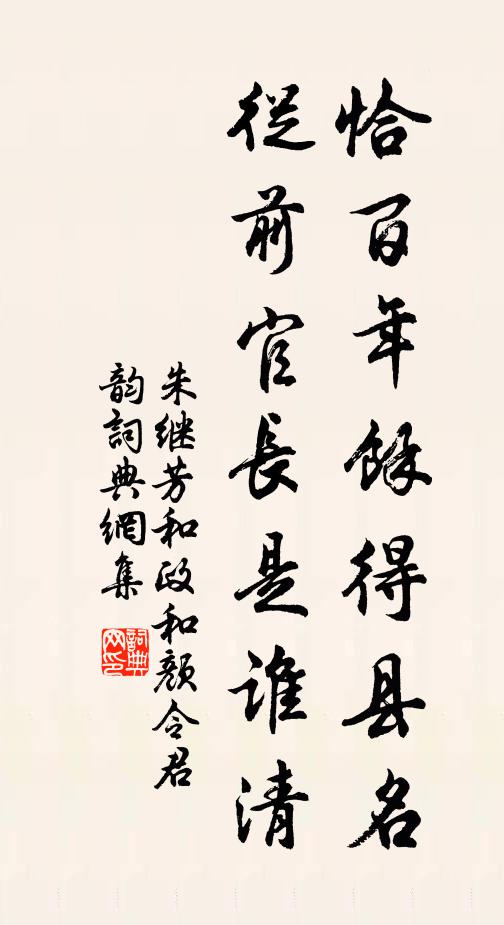 恰百年餘得县名
從前官長是誰清
朱继芳和政和颜令君
韵詞典網集
詞典网印